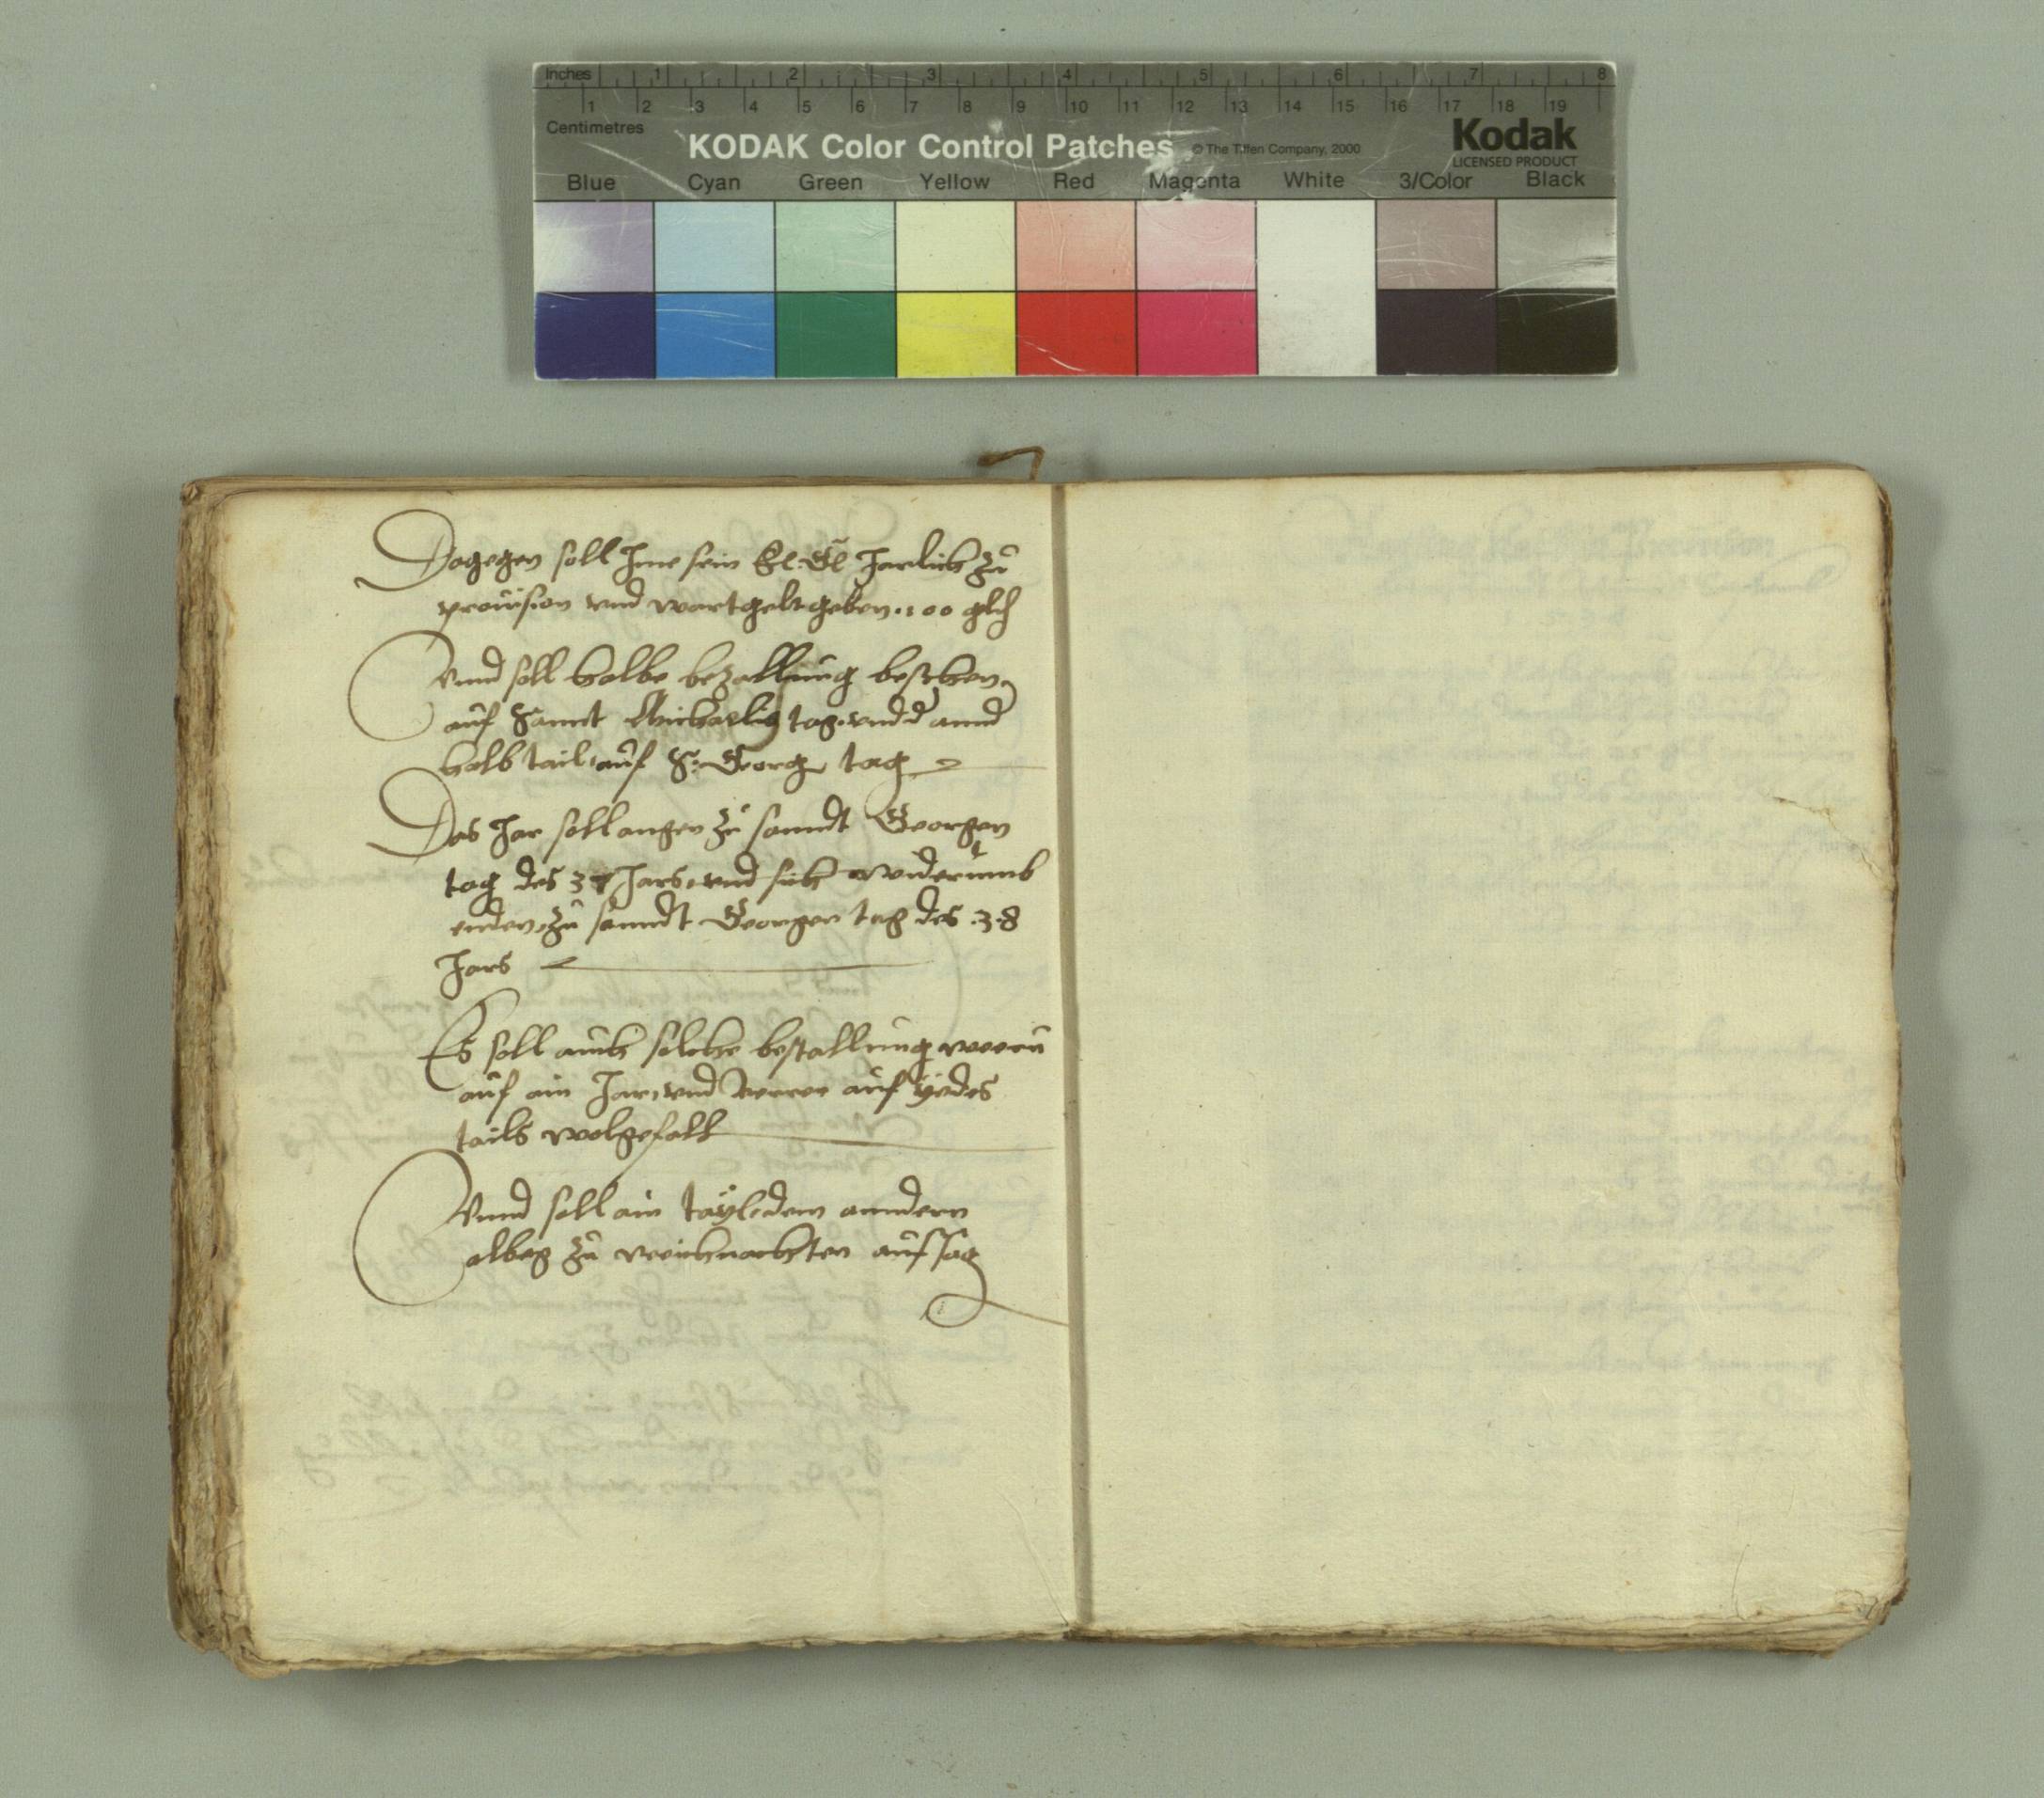 Inches 1 2 3 4 5 6 7 8
1 2 3 4 5 6 7 8 9 10 11 12 13 14 15 16 17 18 19
Centimetres
KODAK Color Control Patches © The Tiffen Company, 2000 Kodak
LICENSED PRODUCT
Blue Cyan Green Yellow Red Magenta White 3/Color Black
Dagegen soll Ime sein Jarlich zu
prouision vnd wartgelt geben .100
Vnnd soll halbe bezallung beschehen
auf Sannt Michaelis tag. vnd d annd
halb tail, auf S. Georg tag
Das Jar soll angen zu sanndt Georgen
tag des 37 Jars, vnd sich widerumb
enden, zu sanndt Georgen tag des .3.8
Jars
Es soll auch solche bestallung weern
auf ain Jar, vnd verrer auf yedes
tails wolgefall
Vnnd soll ain tayl dem anndern
albeg zu weichnachten aufsag